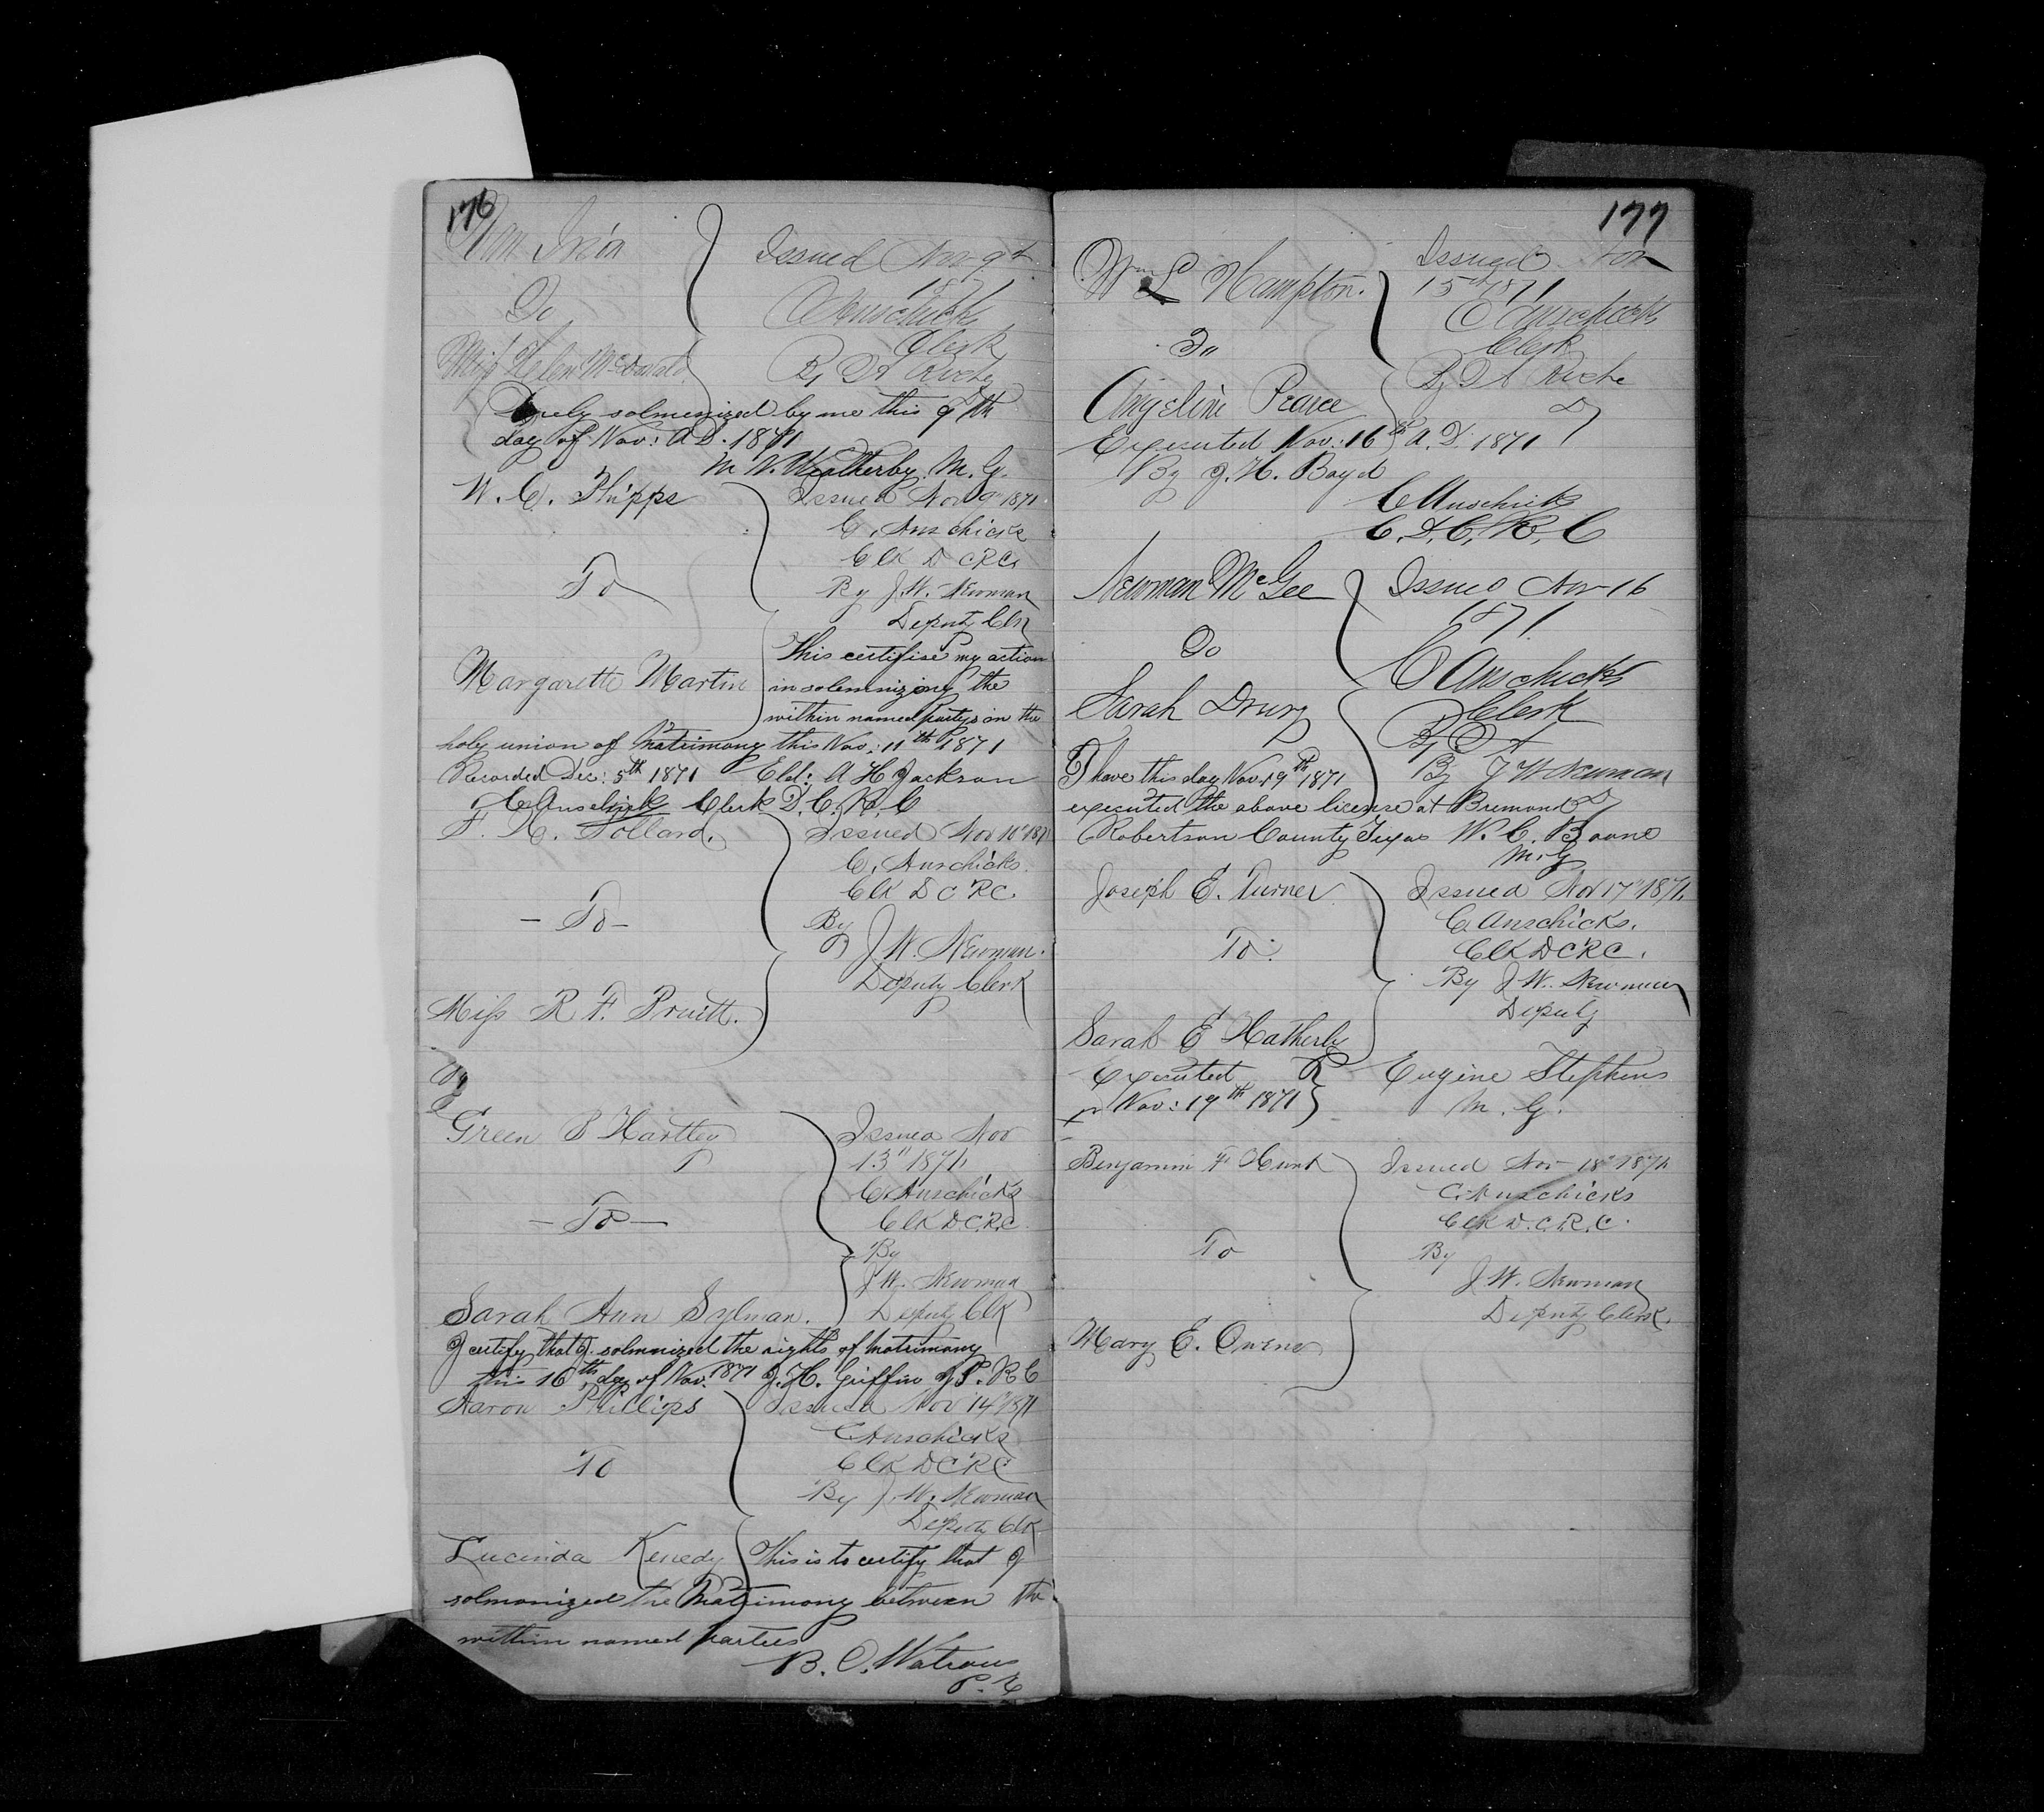 176
Wm
Issued Nov 9th
1871
To
C Anschicks
Clerk
Miss Helen McDonald
By D A
Duely solmenized by me this 9th
day of Nov: A D. 1871
M. W. Weatherby. M. G.
W. C. Phipps
Issued Nov 9" 1871
C. Anschicks
Clk D C R C.
To
By J. W. Newman
Deputy Clk
This certifise my action
Margarette Martin
in solemnizing the
within named partys in the
holy union of Matrimony this Nov: 11th 1871
Recorded Dec: 5th 1871 Eld: A H Jackson
C Anschicks Clerk D. C. R. C
Pollard.
Issued Nov 10" 1871
C. Anschicks.
Clk D C R C.
- To -
By
J. W. Newman.
Deputy Clerk
Miss R F. Pruitt.
Green B Hartley
Issued Nov
13" 1871.
C. Anschicks
- To -
Clk D. C. R. C.
By
J. W. Newman
Sarah Ann Sylman.
Deputy Clk
I certify that I solmnized the rights of Matrimony
this 16th day of Nov. 1871 J. H. Griffin J P. R C
Aaron Phillips
Issued Nov 14" 1871
C Anschicks
To
Clk D C R C.
By J. W. Newman
Deputy Clk
Lucinda Kenedy
This is to certify that I
solmonized the Matrimony between the
within named parties
B. O. Watrous
177
Wm Hampton.
Issued Nov
15th 1871
C Anschicks
To
Clerk
By D A
Angeline Pearce
Executed Nov: 16th A. D. 1871
By J. H. Boyd
C Anschicks
C. D. C. R. C
Newman McGee
Issued Nov 16
1871.
To
C Anschicks
Sarah Drury
Clerk
By D A
I have this day Nov. 19th 1871
By J W Newman
executed the above license at Bremond
Robertson County Texas W. C. Boone
M. G
Joseph E. Turner
Issued Nov 17" 1871.
C. Anschicks.
To.
Clk D C R C.
By J. W. Newman
Deputy
Sarah E Hatherly
Executed
Eugene Stephens
Nov: 19th 1871
M. G.
Benjamin F Hunt
Issued Nov 18" 1871.
C. Anschicks
Clk D. C. R. C.
To
By
J. W. Newman
Deputy Clerk.
Mary E. Owens